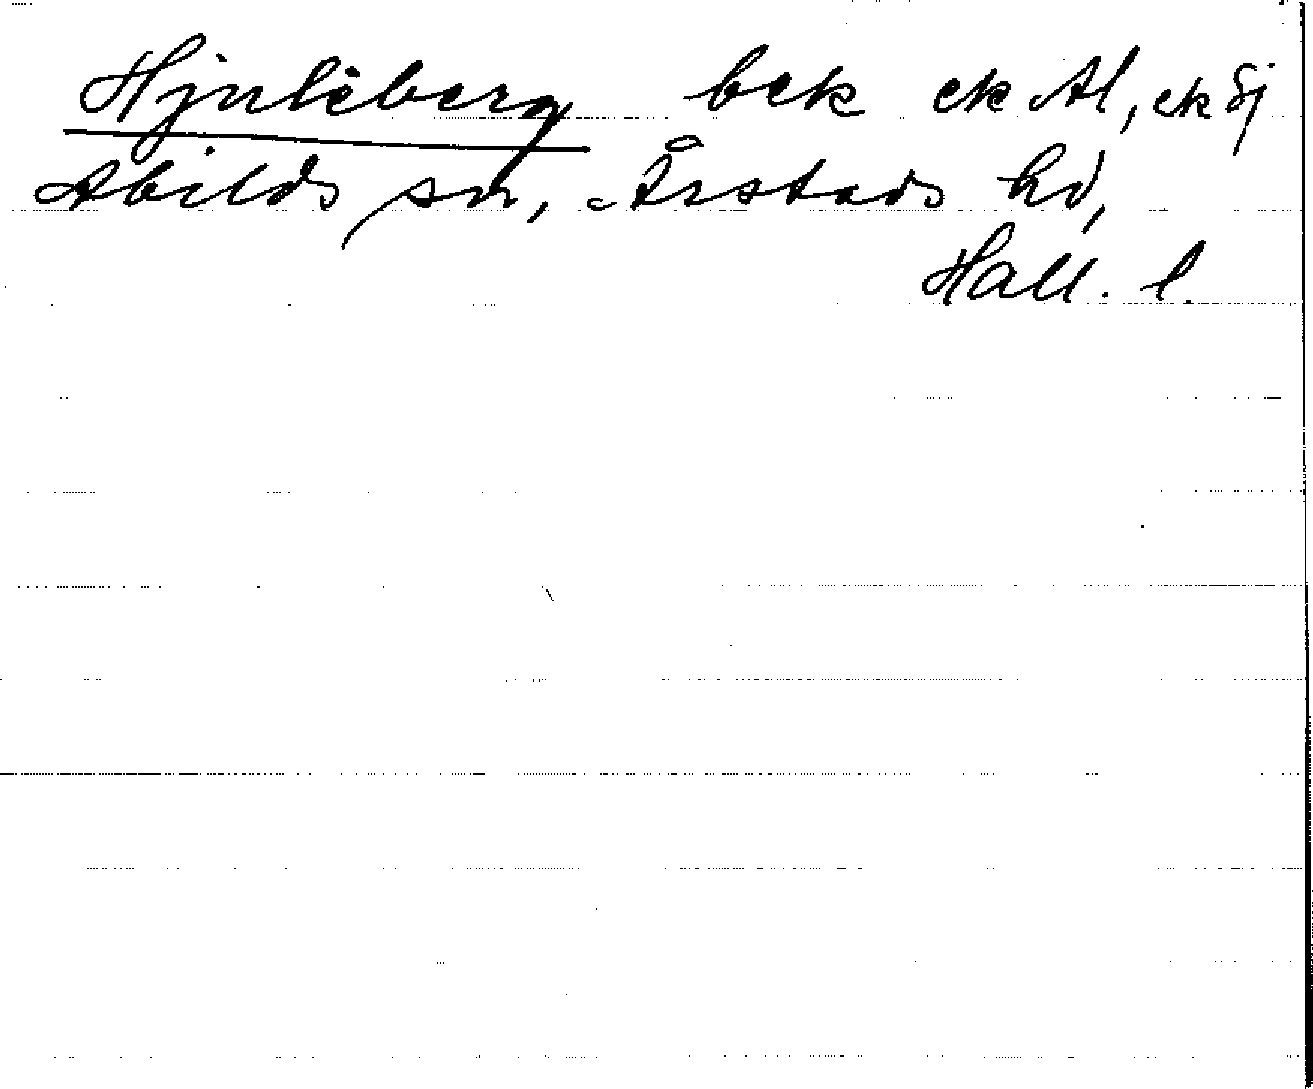 Hjuleberg bek ek Al, ek Sj
Abilds sn, Årstads hd,
Hall. l.